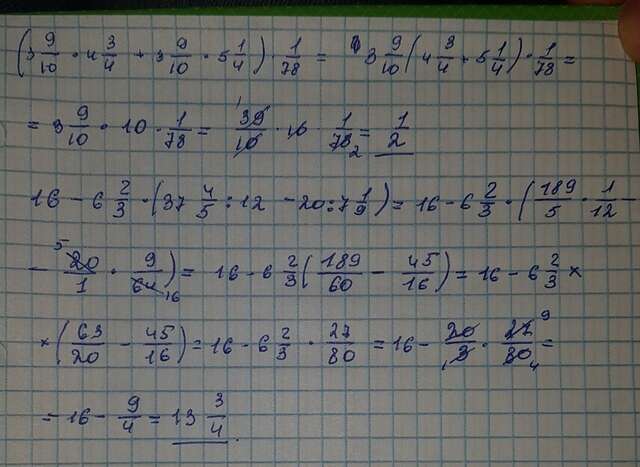 (3 9/10 · 4 3/4 + 3 9/10 · 5 1/4) · 1/78 = 3 9/10 (4 3/4 + 5 1/4) · 1/78 =
= 3 9/10 · 10 · 1/78 = 39/10 · 10 · 1/78 = 1/2
16 - 6 2/3 · (37 4/5 : 12 - 20 : 7 1/9) = 16 - 6 2/3 · (189/5 · 1/12 -
- 20/1 · 9/64) = 16 - 6 2/3 (189/60 - 45/16) = 16 - 6 2/3 ×
× (63/20 - 45/16) = 16 - 6 2/3 · 27/80 = 16 - 20/3 · 27/80 =
= 16 - 9/4 = 13 3/4.